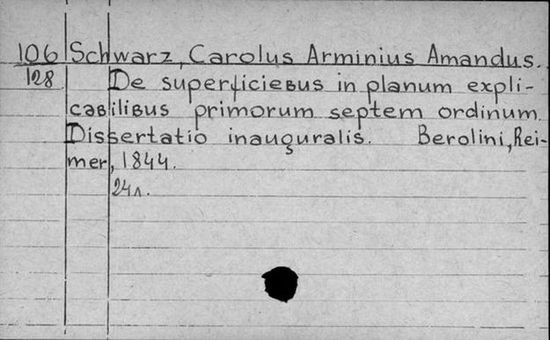 106 Schwarz, Carolus Arminius Amandus.
128 De superficiebus in planum expli-
cabilibus primorum septem ordinum.
Dissertatio inauguralis. Berolini, Rei-
mer, 1844.
24л.